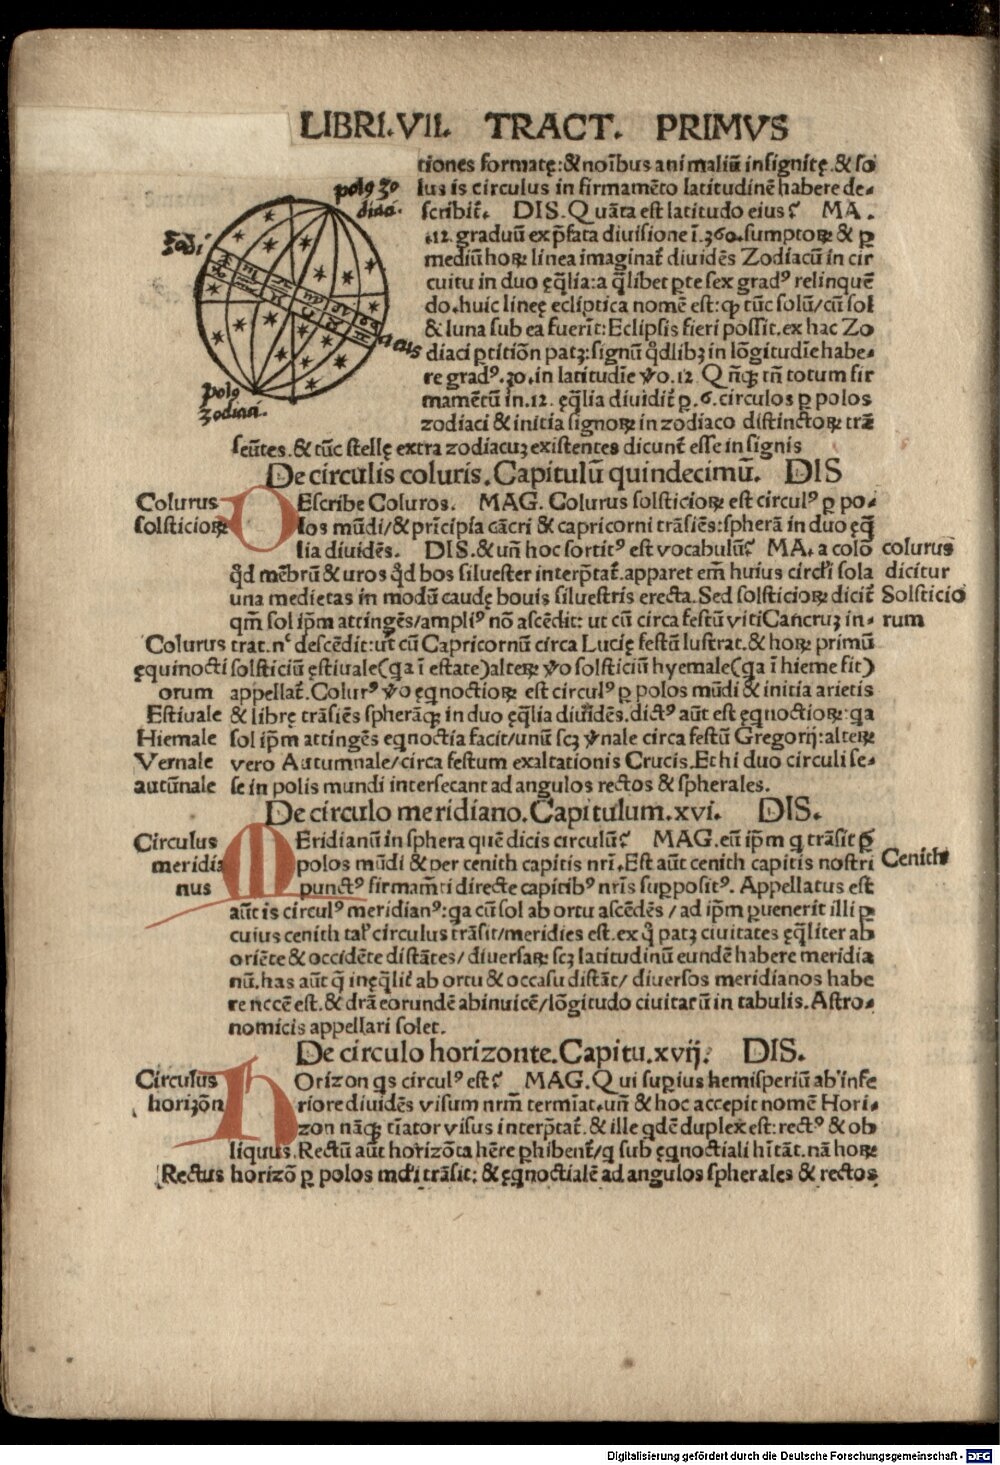 LIBRI.VII. TRACT. PRIMVS
tiones formatę:&noībus animaliū insignitę.&so
lus is circulus in firmamēto latitudinē habere de⸗
scribit̄. DIS.Quāta est latitudo eius? MA.
.12.graduū ex p̄fata diuisione ī.360.sumptoꝝ & ꝑ
mediū hoꝝ linea imaginat̄ diuidēs Zodiacū in cir
cuitu in duo ęq̄lia:a q̄libet ꝑte sex gradꝰ relinquē
do.huic lineę ecliptica nomē est:ꝙ tūc solū/cū sol
& luna sub ea fuerīt:Eclipsis fieri possīt.ex hac Zo
diaci ꝑtitiōn patꝫ:signū q̊dlibꝫ in lōgitudīe habe⸗
re gradꝰ.30.in latitudīe ꝟo.12 Qn̄qꝫ tn̄ totum fir
mamētū in.12. ęq̄lia diuidit̄ ꝑ.6.circulos ꝑ polos
zodiaci & initia signoꝝ in zodiaco distinctoꝝ trā
seūtes.& tūc stellę extra zodiacuꝫ existentes dicunt̄ esse in signis
polꝰ zo
diaci.
zodi
acus
polꝰ
zodiaci.
De circulis coluris.Capitulū quindecimū. DIS
Colurus
solsticioꝝ
DEscribe Coluros. MAG. Colurus solsticioꝝ est circulꝰ ꝑ po⸗
los mūdi/& prīcipia cācri & capricorni trāsiēs:spherā in duo ęq̄
lia diuidēs. DIS.& un̄ hoc sortitꝰ est vocabulū? MA.a colō
colurus
dicitur
Solsticio
rum
q̊d mēbrū & uros q̊d bos siluester interp̄tat̄.apparet em̄ huius circl̄i sola
una medietas in modū caudę bouis siluestris erecta.Sed solsticioꝝ dicit̄
qm̄ sol ip̄m attingēs/ampliꝰ nō ascēdit: ut cū circa festū viti Cancruꝫ in⸗
Colurus
ęquinocti
orum
Estiuale
Hiemale
Vernale
autūnale
trat.nᶜ descēdit:ut cū Capricornū circa Lucię festū lustrat.& hoꝝ primū
solsticiū ęstiuale(qa ī estate)alteꝝ ꝟo solsticiū hyemale(qa ī hieme fit)
appellat̄.Colurꝰ ꝟo eq̄noctioꝝ est circulꝰ ꝑ polos mūdi & initia arietis
& librę trāsiēs spherāqꝫ in duo ęq̄lia diuidēs.dictꝰ aūt est ęq̄noctioꝝ:qa
sol ip̄m attingēs eq̄noctia facit/unū scꝫ ꝟnale circa festū Gregorij:alteꝝ
vero Autumnale/circa festum exaltationis Crucis.Et hi duo circuli se⸗
se in polis mundi intersecant ad angulos rectos & spherales.
De circulo meridiano.Capitulum.xvi. DIS.
Circulus
meridia
nus
MEridianū in sphera quē dicis circulū? MAG.eū ip̄m q̄ trāsit ꝑ
polos mūdi & per cenith capitis nr̄i.Est aūt cenith capitis nostri
Cenith
punctꝰ firmam̄ti directe capitibꝰ nr̄is suppositꝰ. Appellatus est
aūt is circulꝰ meridianꝰ:qa cū sol ab ortu ascēdēs / ad ip̄m ꝑuenerit illi ꝑ
cuius cenith tal̄ circulus trāsit/meridies est.ex q̊ patꝫ ciuitates ęq̄liter ab
oriēte & occidēte distātes/diuersaꝝ scꝫ latitudinū eundē habere meridia
nū.has aūt q̄ inęq̄lit̄ ab ortu & occasu distāt/ diuersos meridianos habe
re nccē est.& dr̄ā eorundē abinuicē/lōgitudo ciuitatū in tabulis.Astro⸗
nomicis appellari solet.
De circulo horizonte.Capitu.xvij. DIS.
Circulus
horizōn
HOrizon qs circulꝰ est? MAG.Qui supius hemisperiū ab infe
riore diuidēs visum nr̄m termīat.un̄ & hoc accepit nomē Hori⸗
zon nāqꝫ tīator visus interp̄tat̄.& ille qdē duplex est:rectꝰ & ob
liquus.Rectū aūt horizōta hr̄e ꝑhibent̄/q sub ęq̄noctiali hītāt.nā hoꝝ
Rectus horizō ꝑ polos mūdi trāsit: & ęq̄noctialē ad angulos spherales & rectos
Digitalisierung gefördert durch die Deutsche Forschungsgemeinschaft - DFG